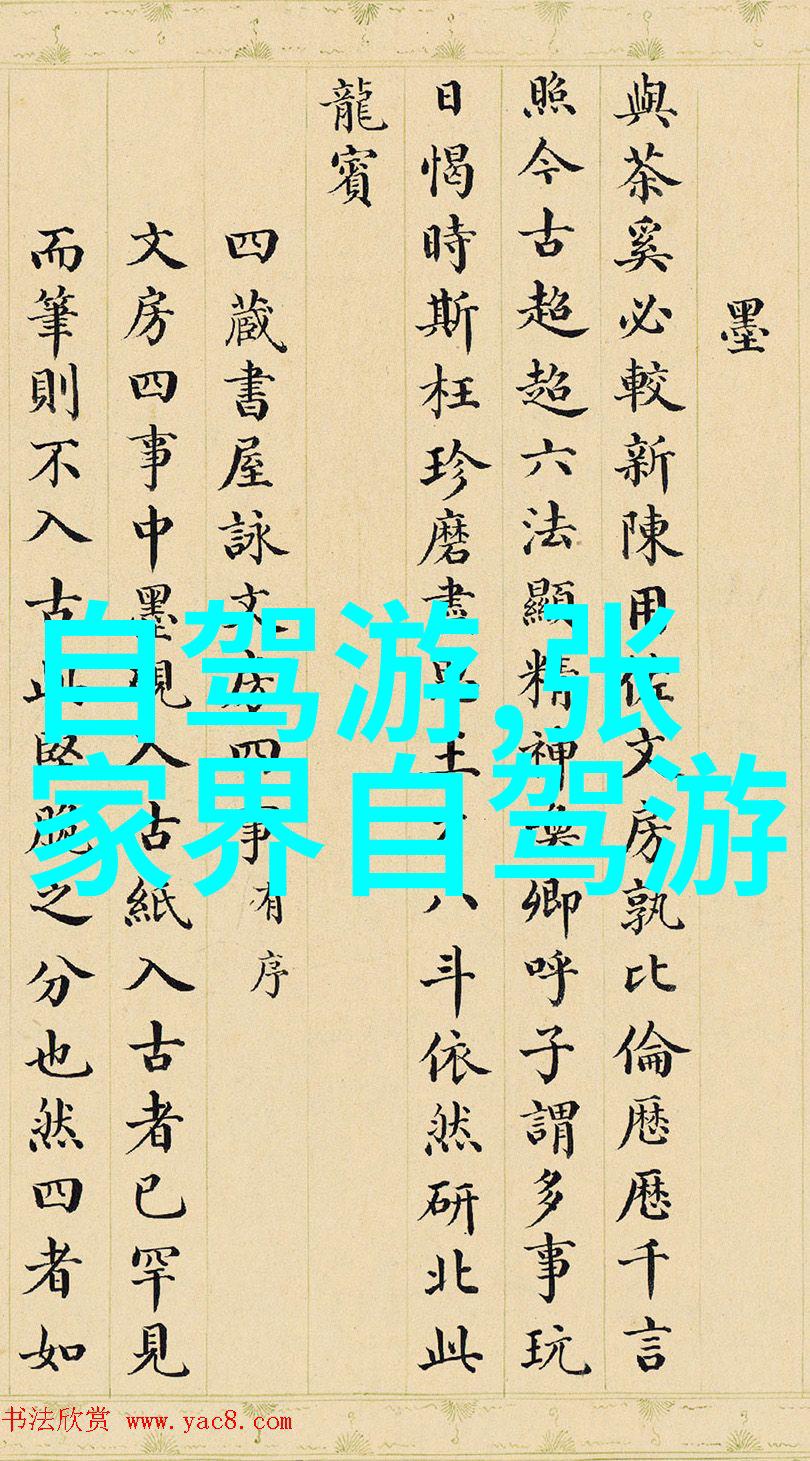 墨
與茶奚必較新陳用佐文房孰比倫厯厯千言
照今古超超六法顯精神喚卿呼子謂多事玩
日愒時斯枉珍磨盡王八斗依然研北此
龍賓
四蔵書屋詠文房四事有序
文房四事中墨硯入古紙入古者已罕見
而筆則不入古此堅脆之分也然四者如
自驾游,张
家界自驾游
书法欣赏 www.yac8.com